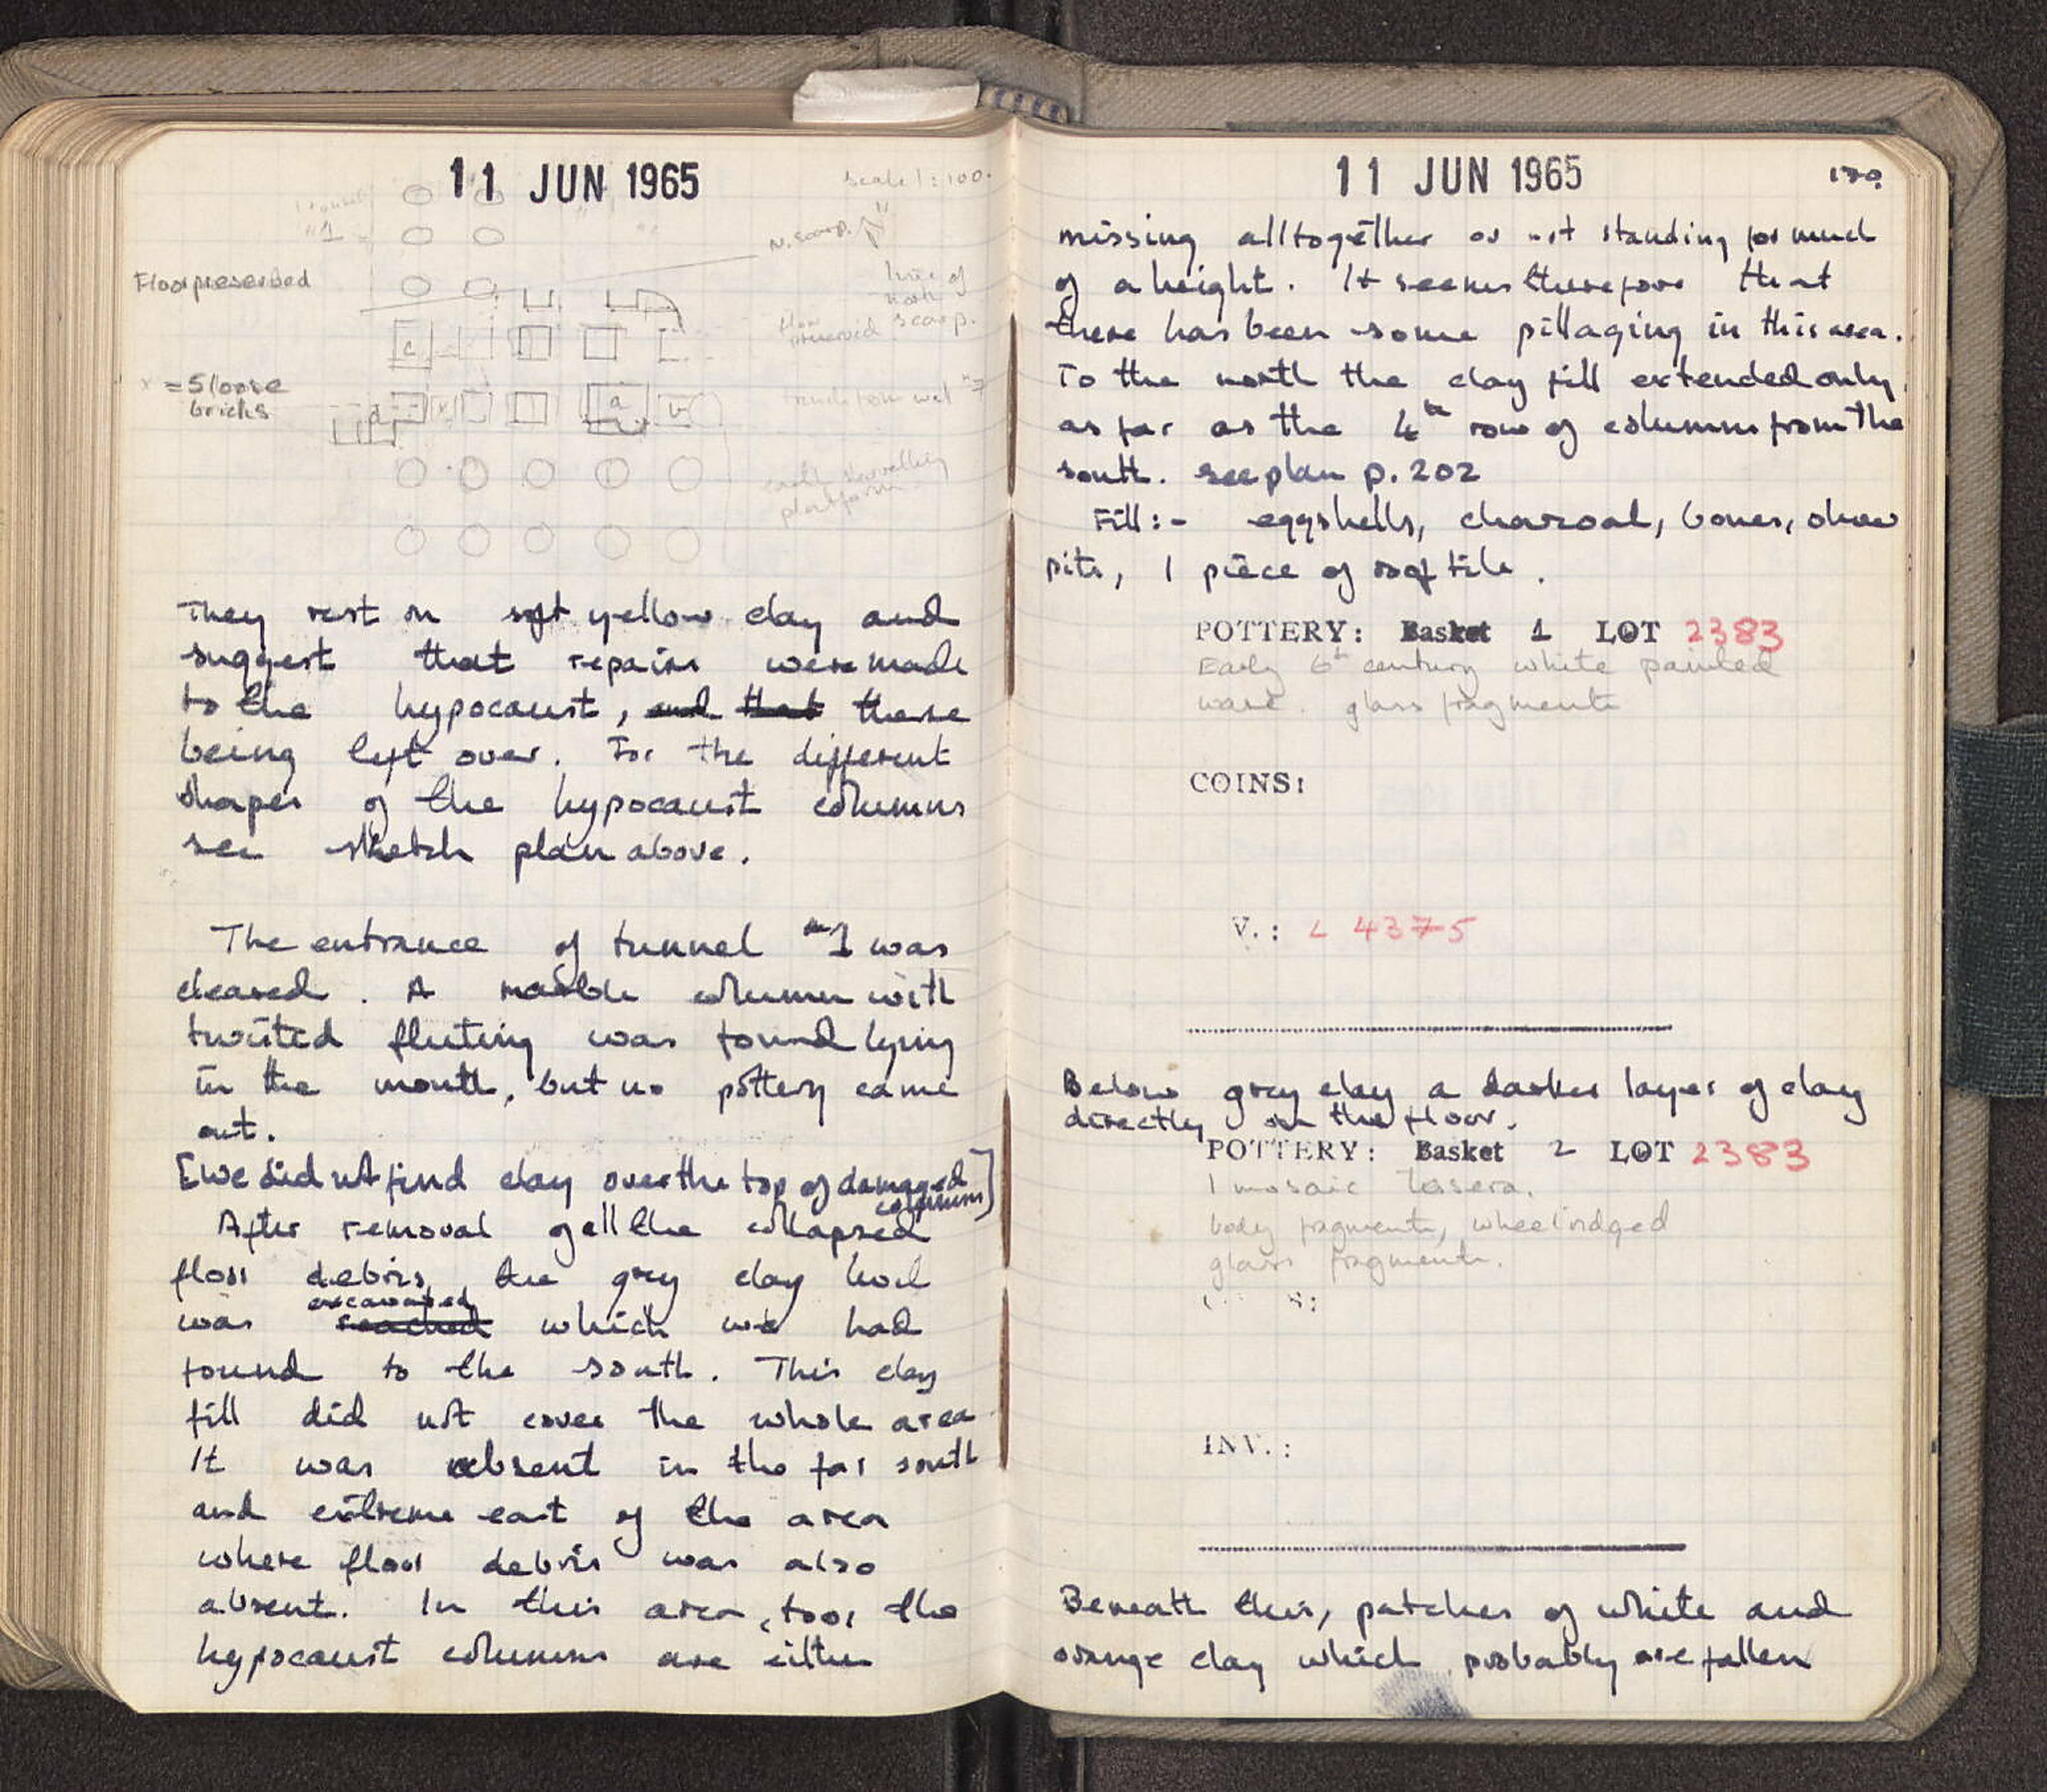 11 JUN 1965
scale 1:100.
N. scarp.
Floor preserved
line of
north
scarp.
floor
preserved
x = 5 loose
bricks
c
d
x
a
b
platform
They rest on soft yellow clay and
suggest that repairs were made
to the hypocaust, and that these
being left over. For the different
shapes of the hypocaust columns
see sketch plan above.
The entrance of tunnel "1 was
cleared. A marble column with
twisted fluting was found lying
in the mouth, but no pottery came
out.
[We did not find clay over the top of damaged
columns]
After removal of all the collapsed
floor debris, the grey clay level
excavated
was reached which we had
found to the south. This clay
fill did not cover the whole area
It was absent in the far south
and extreme east of the area
where floor debris was also
absent. In this area, too, the
hypocaust columns are either
11 JUN 1965
missing alltogether or not standing for much
of a height. It seems therefore that
there has been some pillaging in this area.
To the north the clay fill extended only
as far as the 4th row of columns from the
south. see plan p. 202
Fill:- eggshells, charcoal, bones, olive
pits, 1 piece of roof tile.
POTTERY: Basket 1 LOT 2383
Early 6th century white painted
ware. glass fragments
COINS:
V.: L 4375
Below grey clay a darker layer of clay
directly on the floor.
POTTERY: Basket 2 LOT 2383
1 mosaic tessera.
body fragments, wheelridged
glass fragments.
INV.:
Beneath this, patches of white and
orange clay which probably are fallen